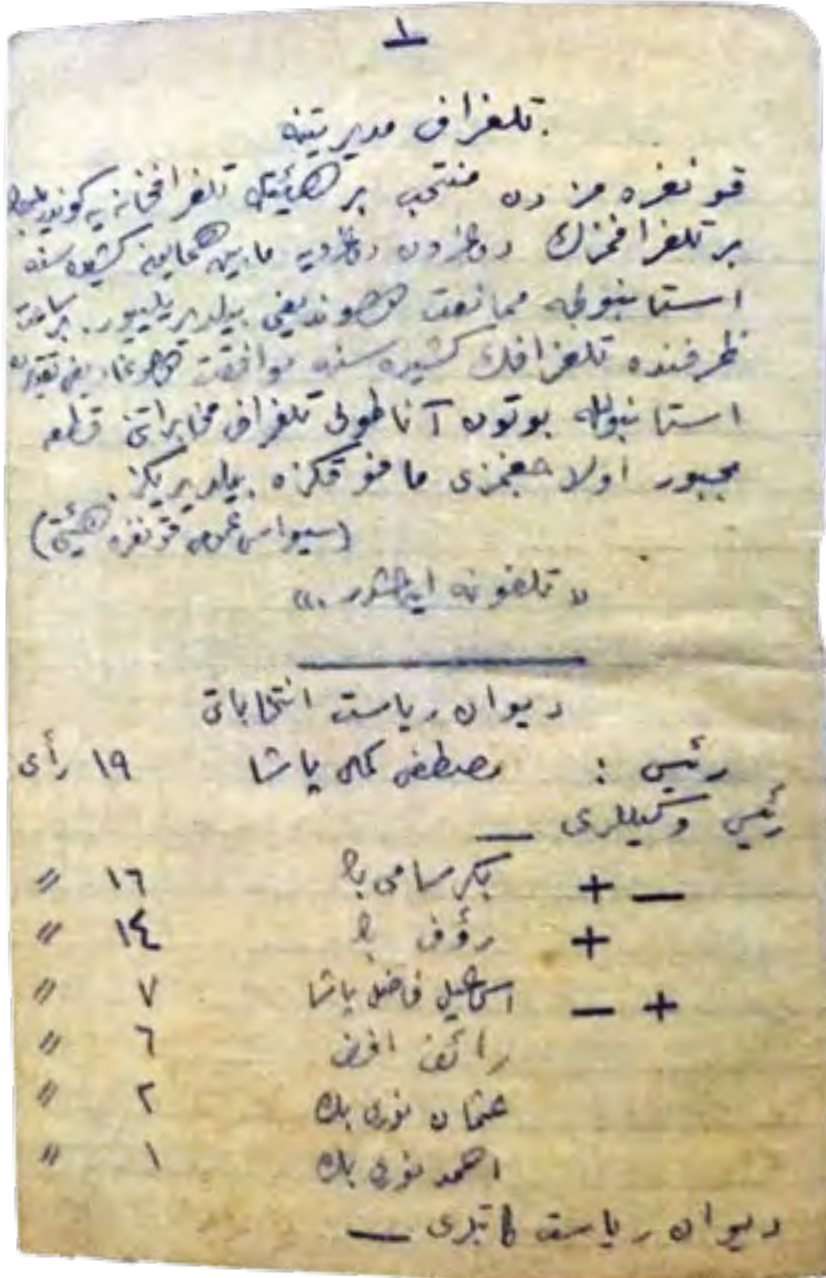 ١
تلغراف مديريتنه
قونغره مزدن منتخب بر هيئتك تلغرافخانه يه
بر تلغرافمزك دوغريدن دوغرويه مابين همايونه كشيده سنه
استانبولجه ممانعت اولونديغى بيلديريلييور. بر ساعت
ظرفنده تلغرافك كشيده سنه موافقت
استانبولله بوتون آناطولى تلغراف مخابراتنى قطعه
مجبور اولاجغمزى مافوقكزه بيلديريكز.
(سيواس عمومى قونغره هيئتى)
ديوان رياست انتخاباتى
رئيس : مصطفى كمال پاشا ١٩ رأى
رئيس وكيللرى —
— + بكر سامى بك ١٦ 〃
+ رؤف بك ١٤ 〃
+ — اسماعيل فاضل پاشا ٧ 〃
رائف افندى ٦ 〃
عثمان نورى بك ٢ 〃
احمد نورى بك ١ 〃
ديوان رياست كاتبلرى —